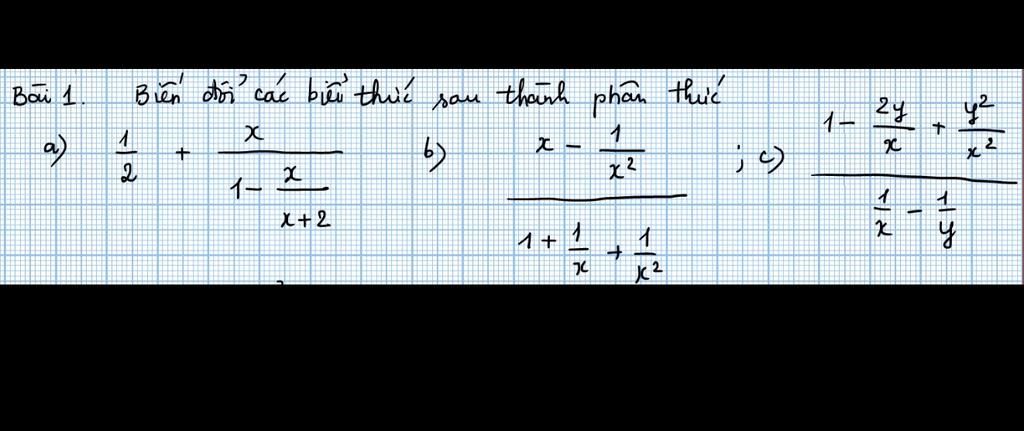 Bài 1. Biến đổi các biểu thức sau thành phân thức
a) 1/2 + x/(1 - x/(x+2)) b) (x - 1/x²)/(1 + 1/x + 1/x²) ; c) (1 - 2y/x + y²/x²)/(1/x - 1/y)